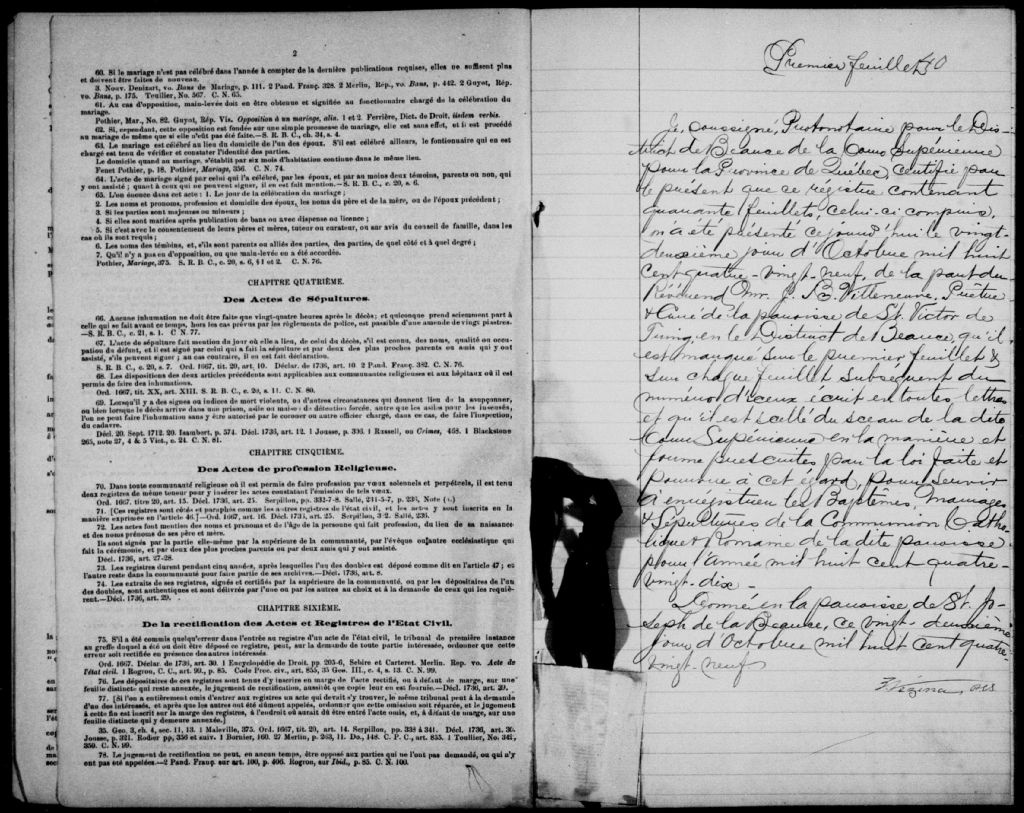 2
60. Si le mariage n'est pas célébré dans l'année à compter de la dernière publications requises, elles ne suffisent plus
et doivent être faites de nouveau.
3. Nouv. Denizart, vo. Bans de Mariage, p. 111. 2 Pand. Franç. 328. 2 Merlin, Rep., vo. Bans, p. 442. 2 Guyot, Rép.
vo. Bans, p. 175. Toullier, No. 567. C. N. 65.
61. Au cas d'opposition, main-levée doit en être obtenue et signifiée au fonctionnaire chargé de la célébration du
mariage.
Pothier, Mar., No. 82. Guyot, Rép. Vis. Opposition à un mariage, alin. 1 et 2. Ferrière, Dict. de Droit, iisdem verbis.
62. Si, cependant, cette opposition est fondée sur une simple promesse de mariage, elle est sans effet, et il est procédé
au mariage de même que si elle n'eût pas été faite.—S. R. B. C., ch. 34, s. 4.
63. Le mariage est célébré au lieu du domicile de l'un des époux. S'il est célébré ailleurs, le fontionnaire qui en est
chargé est tenu de vérifier et constater l'identité des parties.
Le domicile quand au mariage, s'établit par six mois d'habitation continue dans le même lieu.
Fenet Pothier, p. 18. Pothier, Mariage, 356. C. N. 74.
64. L'acte de mariage signé par celui qui l'a célébré, par les époux, et par au moins deux témoins, parents ou non, qui
y ont assisté; quant à ceux qui ne peuvent signer, il en est fait mention.—S. R. B. C., c. 20, s. 6.
65. L'on énonce dans cet acte: 1. Le jour de la célébration du mariage;
2. Les noms et pronoms, profession et domicile des époux, les noms du père et de la mère, ou de l'époux précédent;
3. Si les parties sont majeures ou mineurs;
4. Si elles sont mariées après publication de bans ou avec dispense ou licence;
5. Si c'est avec le consentement de leurs pères et mères, tuteur ou curateur, ou sur avis du conseil de famille, dans les
cas où ils sont requis;
6. Les noms des témoins, et, s'ils sont parents ou alliés des parties, des parties, de quel côté et à quel degré;
7. Qu'il n'y a pas eu d'opposition, ou que main-levée en a été accordée.
Pothier, Mariage, 375. S. R. B. C., c. 20, s. 6, § 1 et 2. C. N. 76.
CHAPITRE QUATRIÈME.
Des Actes de Sépultures.
66. Aucune inhumation ne doit être faite que vingt-quatre heures après le décès; et quiconque prend sciemment part à
celle qui se fait avant ce temps, hors les cas prévus par les règlements de police, est passible d'une amende de vingt piastres.
—S. R. B. C., c. 21, s. 1. C N. 77.
67. L'acte de sépulture fait mention du jour où elle a lieu, de celui du décès, s'il est connu, des noms, qualité ou occu-
pation du défunt, et il est signé par celui qui a fait la sépulture et par deux des plus proches parents ou amis qui y ont
assisté, s'ils peuvent signer; au cas contraire, il en est fait déclaration.
S. R. B. C., c. 20, s. 7. Ord. 1667, tit. 20, art. 10. Déclar. de 1736, art. 10. 2 Pand. Franç. 382. C. N. 76.
68. Les dispositions des deux articles précédents sont applicables aux communautés religieuses et aux hôpitaux où il est
permis de faire des inhumations.
Ord. 1667, tit. XX, art. XIII. S. R. B. C., c. 20, s. 11. C. N. 80.
69. Lorsqu'il y a des signes ou indices de mort violente, ou d'autres circonstances qui donnent lieu de la soupçonner,
ou bien lorsque le décès arrive dans une prison, asile ou maison de détention forcée, autre que les asiles pour les insensés,
l'on ne peut faire l'inhumation sans y être autorisé par le coroner ou autre officier chargé, dans ces cas, de faire l'inspection,
du cadavre.
Décl. 20. Sept. 1712. 20. Isambert, p. 574. Décl. 1736, art. 12. 1 Jousse, p. 396. 1 Russell, on Crimes, 468. 1 Blackstone
265, note 27, 4 & 5 Vict., c. 24. C. N. 81.
CHAPITRE CINQUIÈME.
Des Actes de profession Religieuse.
70. Dans toute communauté religieuse où il est permis de faire profession par vœux solennels et perpétrels, il est tenu
deux registres de même teneur pour y insérer les actes constatant l'émission de tels vœux.
Ord. 1667, titre 20, art. 15. Décl. 1736, art. 25. Serpillon, pp. 332-7-8. Sallé, 241-5-7, p. 236, Note
71. [Ces registres sont cotés et paraphés comme les autres registres de l'état civil, et les actes y sont inscrits en la
manière exprimée en l'article 46.]—Ord. 1667, art. 16. Décl. 1736, art. 25. Serpillon, 3 2. Sallé, 236.
72. Les actes font mention des noms et pronoms et de l'âge de la personne qui fait profession, du lieu de sa naissance
et des noms prénoms de ses père et mère.
Ils sont signés par la partie elle-même par la supérieure de la communauté, par l'évêque ou autre ecclésiatique qui
fait la cérémonie, et par deux des plus proches parents ou par deux amis qui y ont assisté.
Décl. 1736, art. 27-28.
73. Les registres durent pendant cinq années, après lesquelles l'un des doubles est déposé comme dit en l'article 47; et
l'autre reste dans la communauté pour faire partie de ses archives.—Décl. 1736, art. 8.
74. Les extraits de ses registres, signés et certifiés par la supérieure de la communauté, ou par les dépositaires de l'un
des doubles, sont authentiques et sont délivrés par l'une ou par les autres au choix et à la demande de ceux qui les requiè-
rent.—Décl. 1736, art. 29.
CHAPITRE SIXIÈME.
De la rectification des Actes et Registres de l'Etat Civil.
75. S'il a été commis quelqu'erreur dans l'entrée au registre d'un acte de l'état civil, le tribunal de première instance
au greffe duquel a été ou doit être déposé ce registre, peut, sur la demande de toute partie intéressée, ordonner que cette
erreur soit rectifiée en présence des autres intéressés.
Ord. 1667. Déclar. de 1736, art. 30. 1 Encyclopédie de Droit, pp. 205-6, Sebire et Carteret. Merlin. Rep. vo. Acte de
l'état civil. 1 Rogron, C. C., art. 99., p. 85. Code Proc. civ., art. 855, 35 Geo. III., c. 4, s. 13. C. N. 99.
76. Les dépositaires de ces registres sont tenus d'y inscrire en marge de l'acte rectifié, ou à défaut de marge, sur une
feuille distincte qui reste annexée, le jugement de rectification, aussitôt que copie leur en est fournie.—Décl. 1736, art. 30.
77. [Si l'on a entièrement omis d'entrer aux registres un acte qui devait s'y trouver, le même tribunal peut à la demande
d'un des intéressés, et après que les autres ont été dûment appelés, ordonner que cette omission soit réparée, et le jugement
à cette fin est inscrit sur la marge des registres, à l'endroit où aurait dû être entré l'acte omis, et, à défaut de marge, sur une
feuille distincte qui y demeure annexée.]
35. Geo. 3, ch. 4, sec. 11, 13. 1 Maleville, 375. Ord. 1667, tit. 20, art. 14. Serpillon, pp. 338 à 341. Décl. 1736, art. 30.
Jousse, p. 321. Rodier pp, 356 et suiv. 1 Bornier, 160. 27 Merlin, p. 263, 11. Do., 148. C. P. C., art. 855. 1 Toullier, No. 341,
350. C. N. 99.
78. Le jugement de rectification ne peut, en aucun temps, être opposé aux parties qui ne l'ont pas demandé, ou qui n'y
ont pas été appelées.—2 Pand. Franç. sur art. 100, p. 406. Rogron, sur Ibid., p. 85. C. N. 100.
Premier feuillet 40
Je, soussigné, Protonotaire pour le Dis-
trict de Beauce de la Cour Supérieure
pour la Province de Québec, certifie par
le présent que ce régistre contenant
quarante feuillets, celui-ci compris,
m'a été présenté cejourd'hui le vingt-
deuxième jour d'Octobre mil huit
cent quatre-vingt-neuf, de la part du
Révérend Mr. J. B. Villeneuve, Prêtre
& Curé de la paroisse de St. Victor de
Tring, en le District de Beauce, qu'il
est marqué sur le premier feuillet &
sur chaque feuillet subséquent du
numéro d'iceux écrit en toutes lettres
et qu'il est scellé du sceau de la dite
Cour Supérieure en la manière et
forme prescrites par la loi faite et
pourvue à cet égard, pour servir
à enregistrer les Baptêmes, Mariages
& Sépultures de la Communion Catho-
lique & Romaine de la dite paroisse
pour l'année mil huit cent quatre-
vingt-dix -
Donné en la paroisse de St. Jo-
seph de la Beauce, ce vingt-deuxième
jour d'Octobre mil huit cent quatre-
vingt-neuf
Vézina